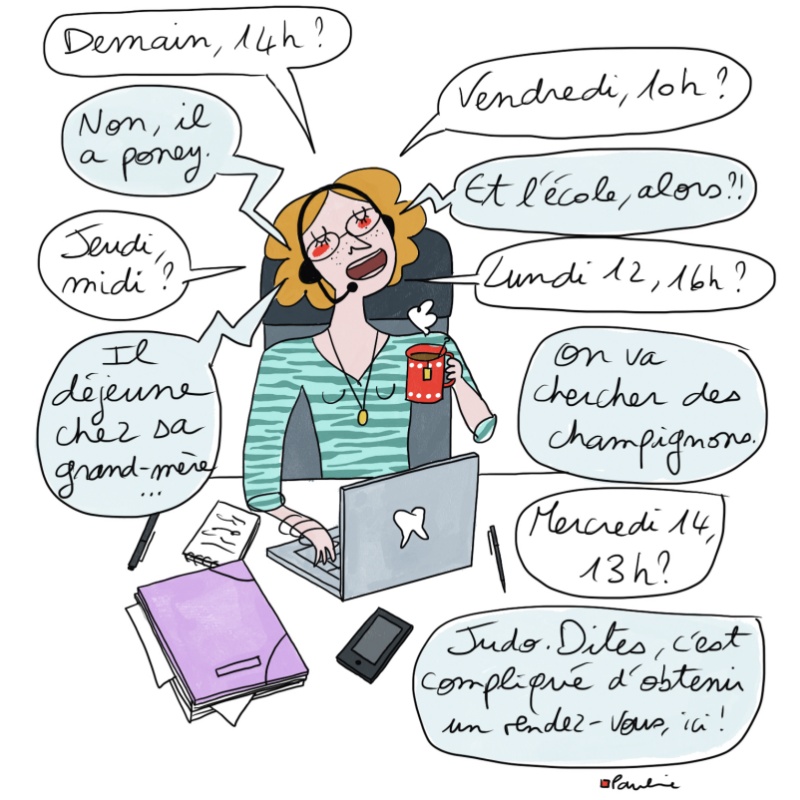 Demain, 14h ?
Non, il
a poney.
Jeudi,
midi ?
Il
déjeune
chez sa
grand-mère
...
Vendredi, 10h ?
Et l'école, alors ?!
Lundi 12, 16h ?
On va
chercher des
champignons.
Mercredi 14,
13h ?
Judo. Dites, c'est
compliqué d'obtenir
un rendez-vous, ici !
Pauline